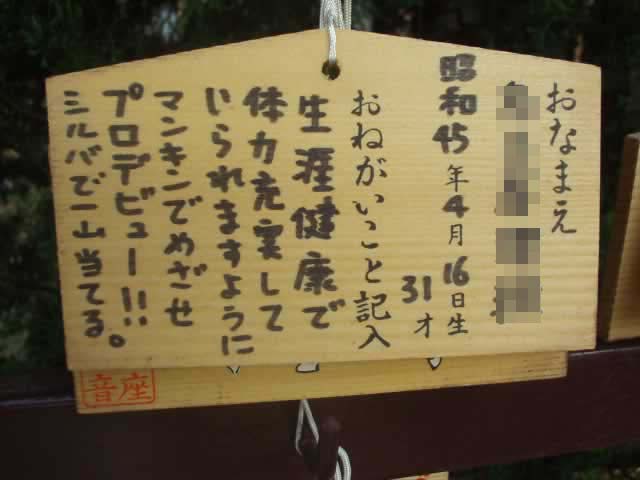 おなまえ
昭和45年4月16日生
31才
おねがいこと記入
生涯健康で
体力充実して
いられますように
マンキンでめざせ
プロデビュー!!。
シルバで一山当てる
音座